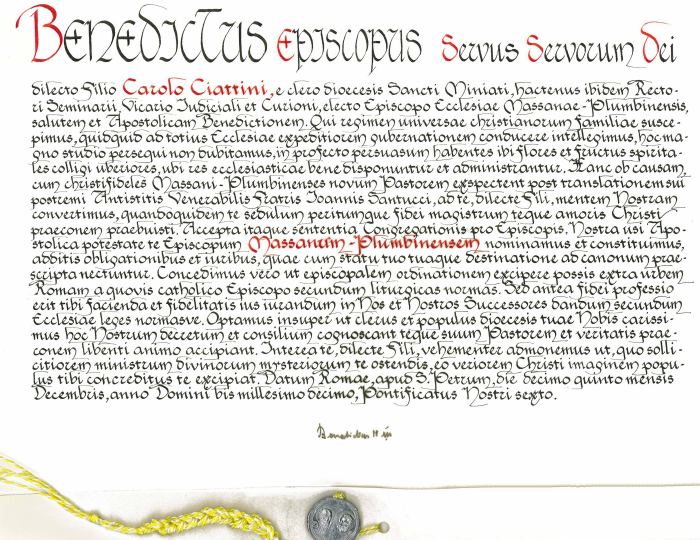 Benedictus Episcopus Servus Servorum Dei
dilecto Filio Carolo Ciattini, e clero dioecesis Sancti Miniati, hactenus ibidem Recto-
ri Seminarii, Vicario Iudiciali et Curioni, electo Episcopo Ecclesiae Massanae-Plumbinensis,
salutem et Apostolicam Benedictionem. Qui regimen universae christianorum familiae susce-
pimus, quidquid ad totius Ecclesiae expeditiorem gubernationem conducere intellegimus, hoc ma-
gno studio persequi non dubitamus, in profecto persuasum habentes ibi flores et fructus spirita-
les colligi uberiores, ubi res ecclesiasticae bene disponuntur et administrantur. Hanc ob causam,
cum christifideles Massani-Plumbinenses novum Pastorem exspectent post translationem sui
postremi Antistitis Venerabilis Fratris Ioannis Santucci, ad te, dilecte Fili, mentem Nostram
convertimus, quandoquidem te sedulum peritumque fidei magistrum teque amoris Christi
praeconem praebuisti. Accepta itaque sententia Congregationis pro Episcopis, Nostra usi Apo-
stolica potestate te Episcopum Massanum-Plumbinensem nominamus et constituimus,
additis obligationibus et iuribus, quae cum statu tuo tuaque destinatione ad canonum prae-
scripta nectuntur. Concedimus vero ut episcopalem ordinationem excipere possis extra urbem
Romam a quovis catholico Episcopo secundum liturgicas normas. Sed antea fidei professio
erit tibi facienda et fidelitatis ius iurandum in Nos et Nostros Successores dandum secundum
Ecclesiae leges normasve. Optamus insuper ut clerus et populus dioecesis tuae Nobis carissi-
mus hoc Nostrum decretum et consilium cognoscant teque suum Pastorem et veritatis prae-
conem libenti animo accipiant. Interea te, dilecte Fili, vehementer admonemus ut, quo solli-
citiorem ministrum divinorum mysteriorum te ostendis, eo veriorem Christi imaginem popu-
lus tibi concreditus te excipiat. Datum Romae, apud S. Petrum, die decimo quinto mensis
Decembris, anno Domini bis millesimo decimo, Pontificatus Nostri sexto.